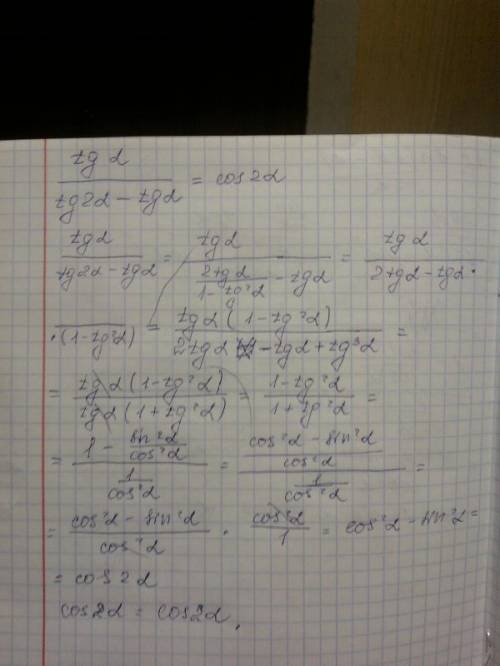 tg α / (tg2α − tgα) = cos2α
tgα / (tg2α − tgα) = tgα / (2tgα / (1 − tg²α) − tgα) = tgα / (2tgα − tgα ·
· (1 − tg²α)) = tgα (1 − tg²α) / (2tgα − tgα + tg³α) =
= tgα (1 − tg²α) / (tgα (1 + tg²α)) = (1 − tg²α) / (1 + tg²α) =
= (1 − sin²α / cos²α) / (1 / cos²α) = ((cos²α − sin²α) / cos²α) / (1 / cos²α) =
= (cos²α − sin²α) / cos²α · cos²α / 1 = cos²α − sin²α =
= cos2α
cos2α = cos2α.